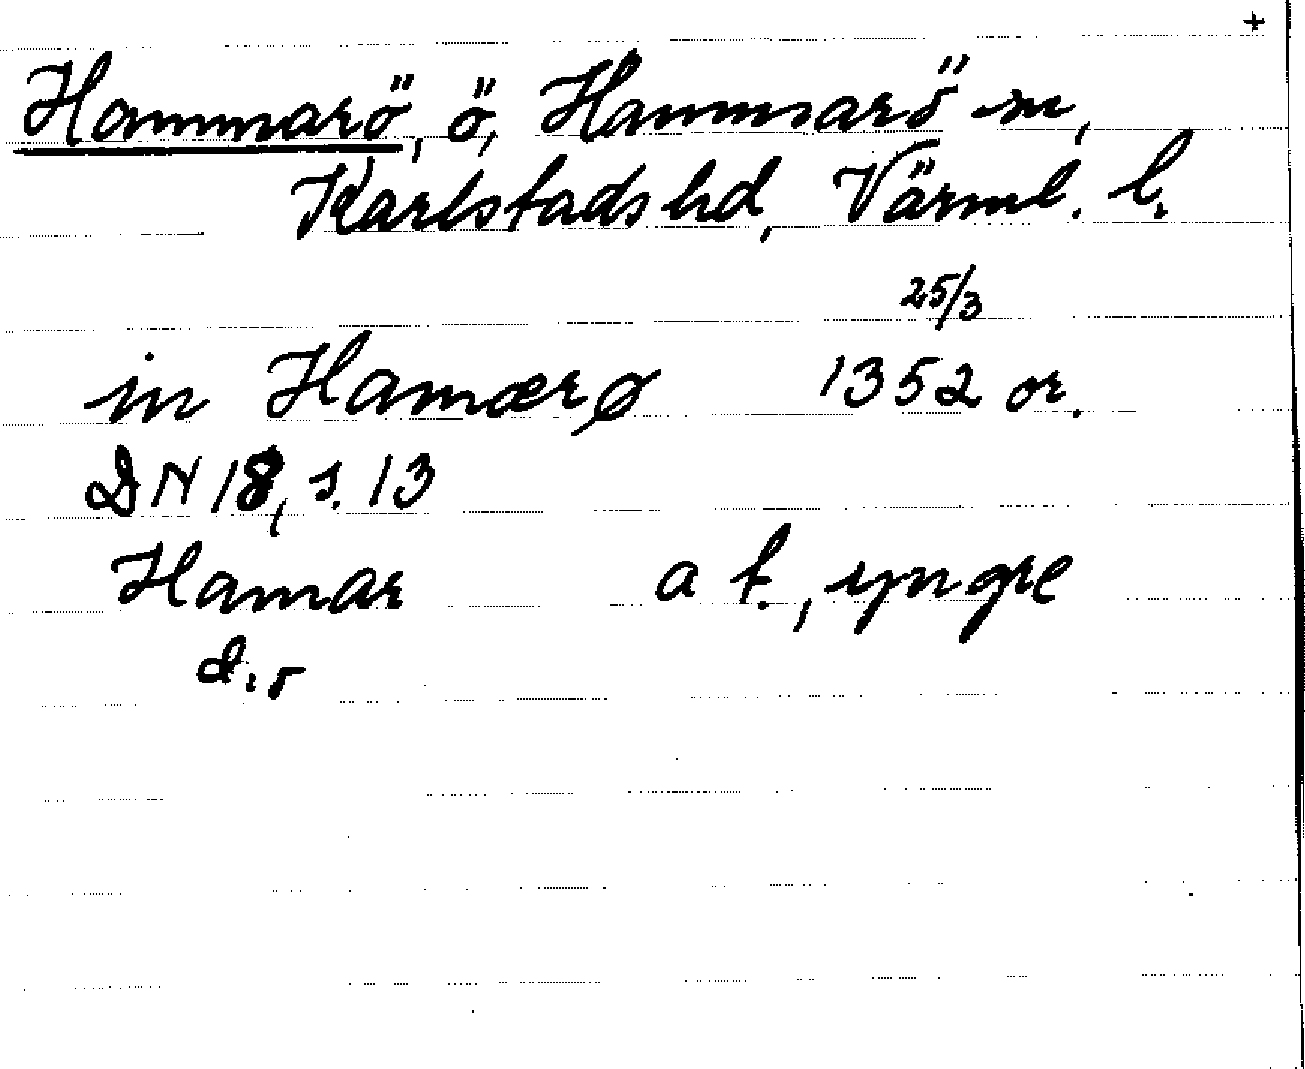 +
Hammarö, ö, Hammarö sn,
Karlstads hd, Värml. l.
25/3
in Hamærø 1352 or.
DN 18, s. 13
Hamar a t., yngre
d:o